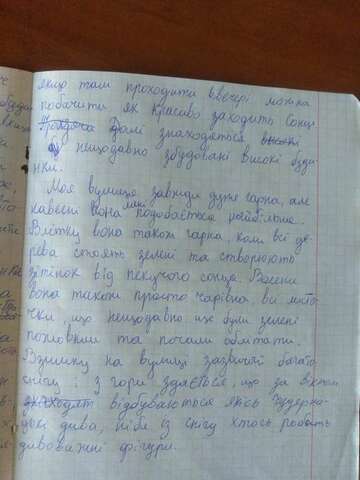 якщо там проходити ввечері можна
побачити як красиво заходить сонце
Далі знаходяться високі
нещодавно збудовані високі буди-
нки.
Моя вулиця завжди дуже гарна, але
навесні вона мені подобається найбільше.
Влітку вона також гарна, коли всі де-
рева стоять зелені та створюють
затінок від пекучого сонця. Восени
вона також просто чарівна, всі листо-
чки що нещодавно ще були зелені
пожовкли та почали облітати.
Взимку на вулиці зазвичай багато
снігу і з гори здається, що за вікном
знаходят відбуваються якісь чудерна-
цькі дива, ніби із снігу хтось робить
дивовижні фігури.